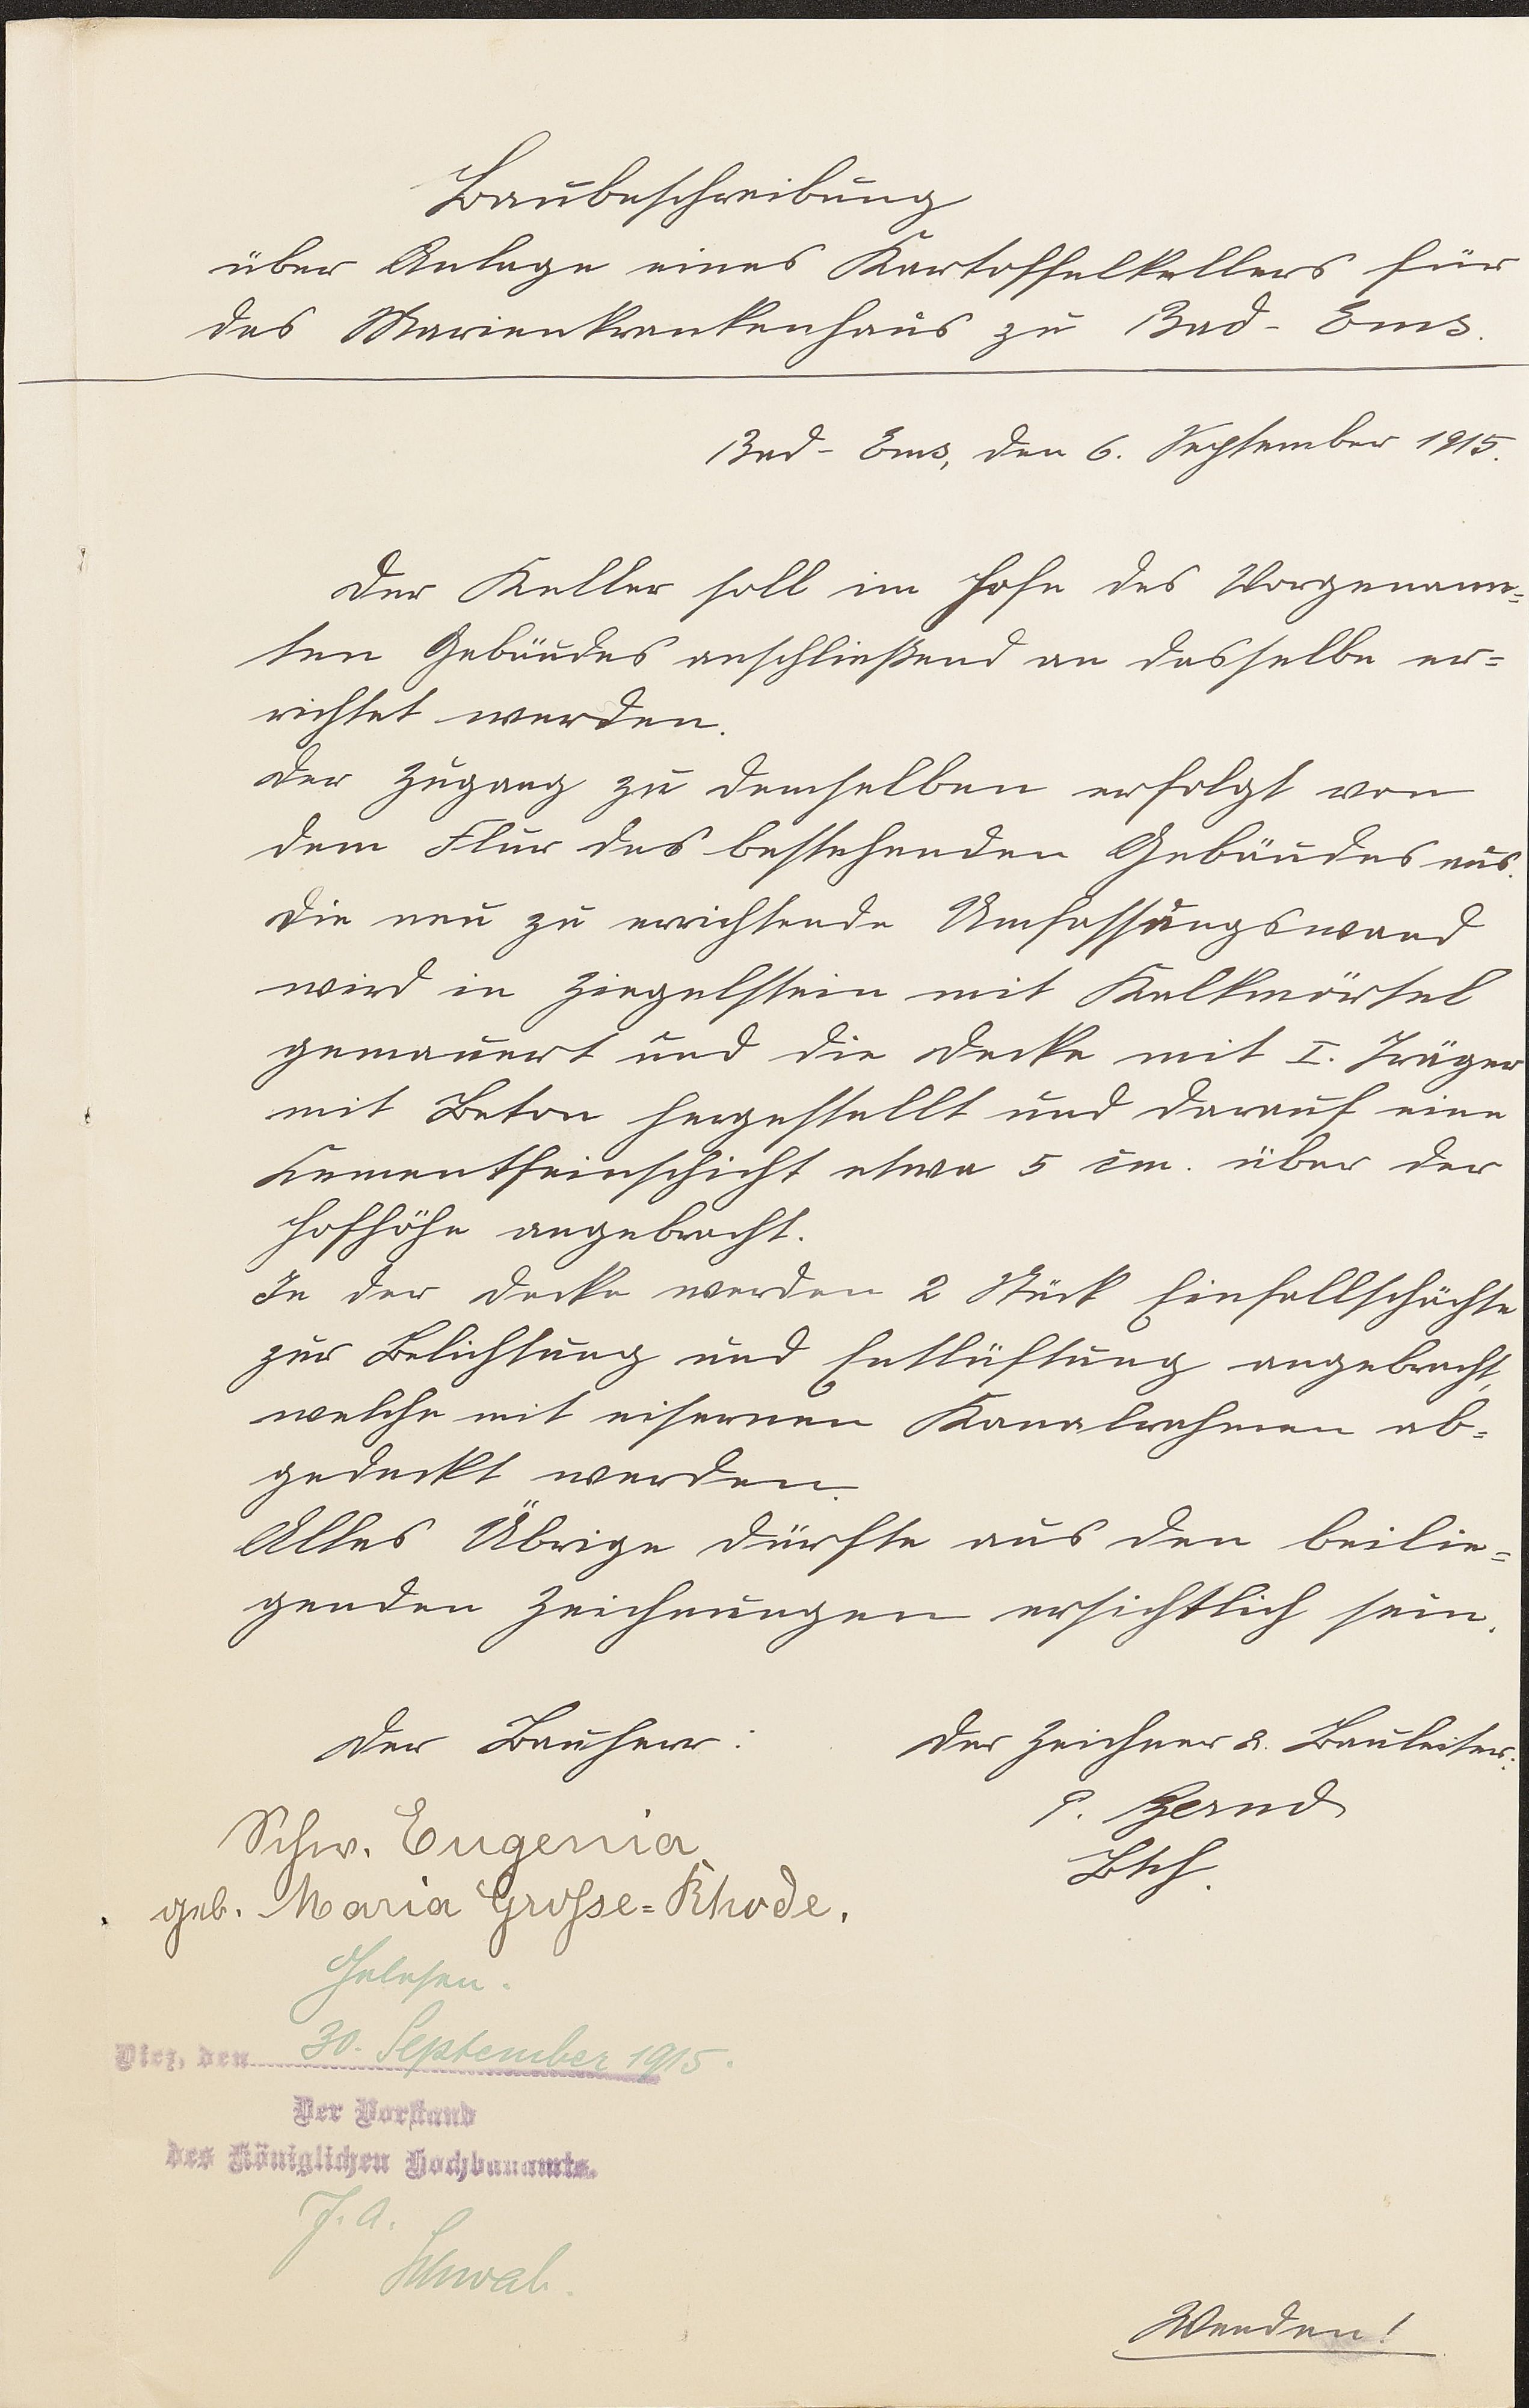 Baubeschreibung
über Anlage eines Kartoffelkellers für
das Marienkrankenhaus zu Bad-Ems.
Bad-Ems, den 6. September 1915.
Der Keller soll im Hofe des Vorgenann=
ten Gebäudes anschließend an dasselbe er=
richtet werden.
Der Zugang zu demselben erfolgt von
dem Flur des bestehenden Gebäudes aus.
Die neu zu errichtende Umfassungswand
wird in Ziegelstein mit Kalkmörtel
gemauert und die Decke mit I. Träger
mit Beton hergestellt und darauf eine
Zementfeinschicht etwa 5 cm. über der
Hofhöhe angebracht.
In der Decke werden 2 Stück Einfallschächte
zur Belichtung und Entlüftung angebracht,
welche mit eisernen Kanalrahmen ab=
gedeckt werden.
Alles Übrige dürfte aus den beilie=
genden Zeichnungen ersichtlich sein.
Der Bauherr:
Der Zeichner & Bauleiter:
Schw. Eugenia
geb. Maria Grosse=Rhode.
Gelesen.
Diez, den 30. September 1915.
Der Vorstand
des Königlichen Hochbauamts.
J. A.
Schwab.
Wenden!